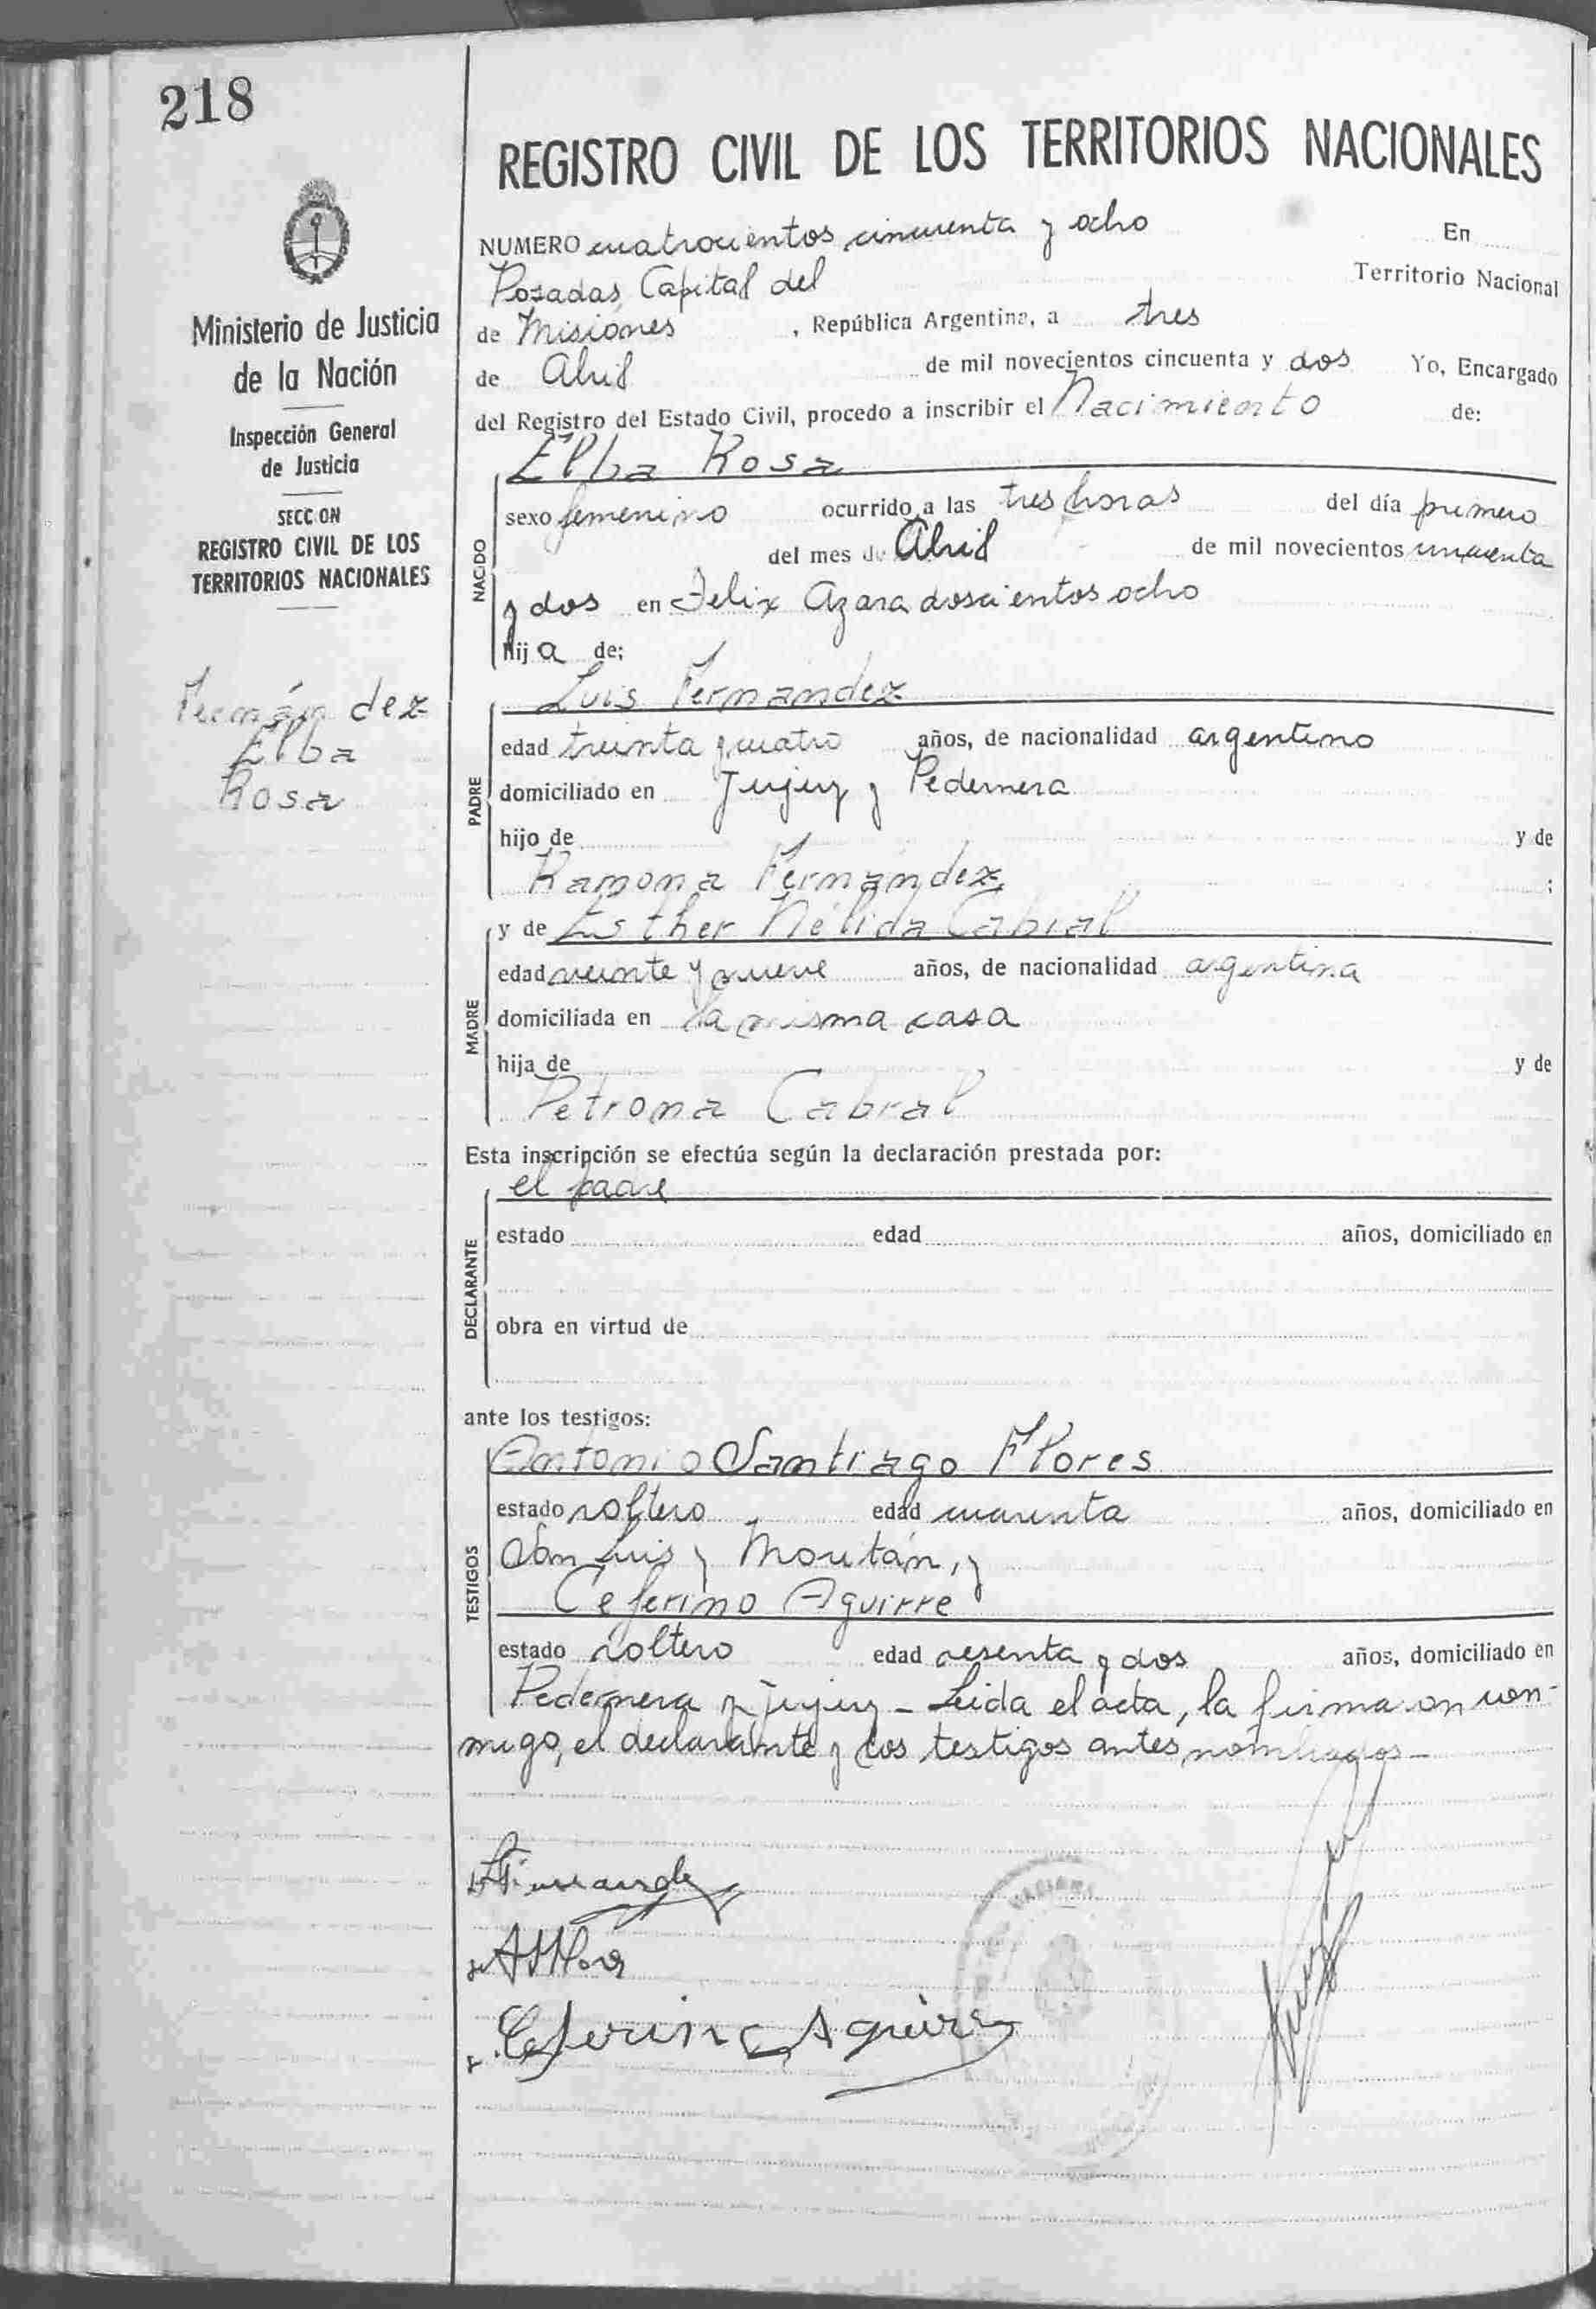 218
Ministerio de Justicia
de la Nación
Inspección General
de Justicia
SECCION
REGISTRO CIVIL DE LOS
TERRITORIOS NACIONALES
Fernández
Elba
Rosa
REGISTRO CIVIL DE LOS TERRITORIOS NACIONALES
NUMERO cuatrocientos cincuenta y ocho En
Posadas, Capital del Territorio Nacional
de Misiones , República Argentina, a tres
de Abril de mil novecientos cincuenta y dos Yo, Encargado
del Registro del Estado Civil, procedo a inscribir el Nacimiento de:
Elba Rosa
NACIDO
sexo femenino ocurrido a las tres horas del día primero
del mes de Abril de mil novecientos cincuenta
y dos en Felix Azara doscientos ocho
hij a de;
Luis Fernández
PADRE
edad treinta y cuatro años, de nacionalidad argentino
domiciliado en Jujuy y Pedernera
hijo de y de
Ramona Fernández, ;
y de Esther Nélida Cabral
MADRE
edad veinte y nueve años, de nacionalidad argentina
domiciliada en la misma casa
hija de y de
Petrona Cabral
Esta inscripción se efectúa según la declaración prestada por:
el padre
DECLARANTE
estado edad años, domiciliado en
obra en virtud de
ante los testigos:
Antonio Santiago Flores
TESTIGOS
estado soltero edad cuarenta años, domiciliado en
San Luis y Moritán, y
Ceferino Aguirre
estado soltero edad sesenta y dos años, domiciliado en
Pedernera y Jujuy - Leida el acta, la firmaron con-
migo, el declarante y los testigos antes nombrados-
ASFlores
Ceferino Aguirre